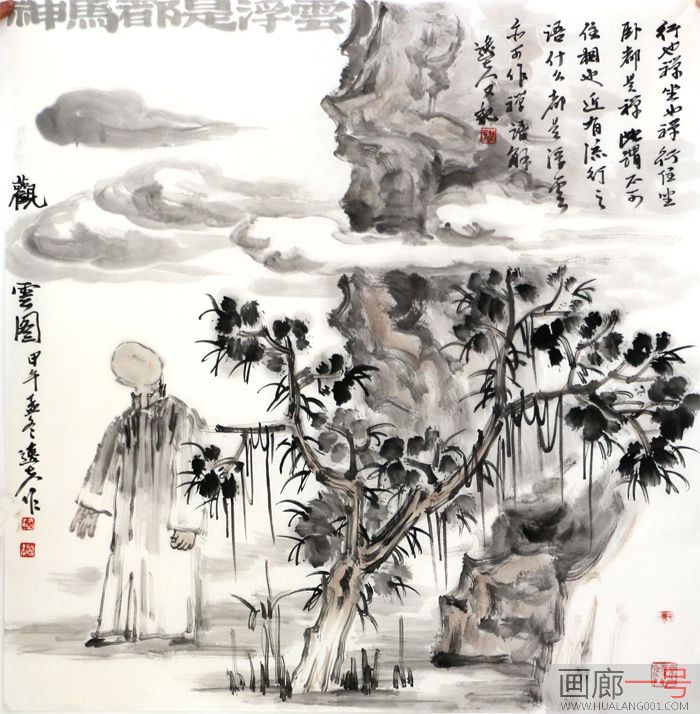 神馬都是浮雲
行也禅坐也禅行住坐
卧都是禅此谓不可
住相也近有流行之
语什么都是浮雲
亦可作禅语解
逸夫又记
觀雲图
甲午孟冬逸夫作
画廊一号
WWW.HUALANG001.COM